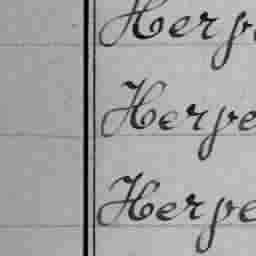 Herp
Herpe
Herpe